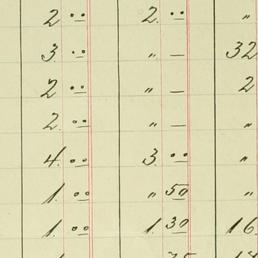 2 .. 2 .. "
3 .. " — 32
2 .. " — 2
2 .. " — "
4. .. 3 .. "
1. .. " 50 "
1. .. 1. 30 16